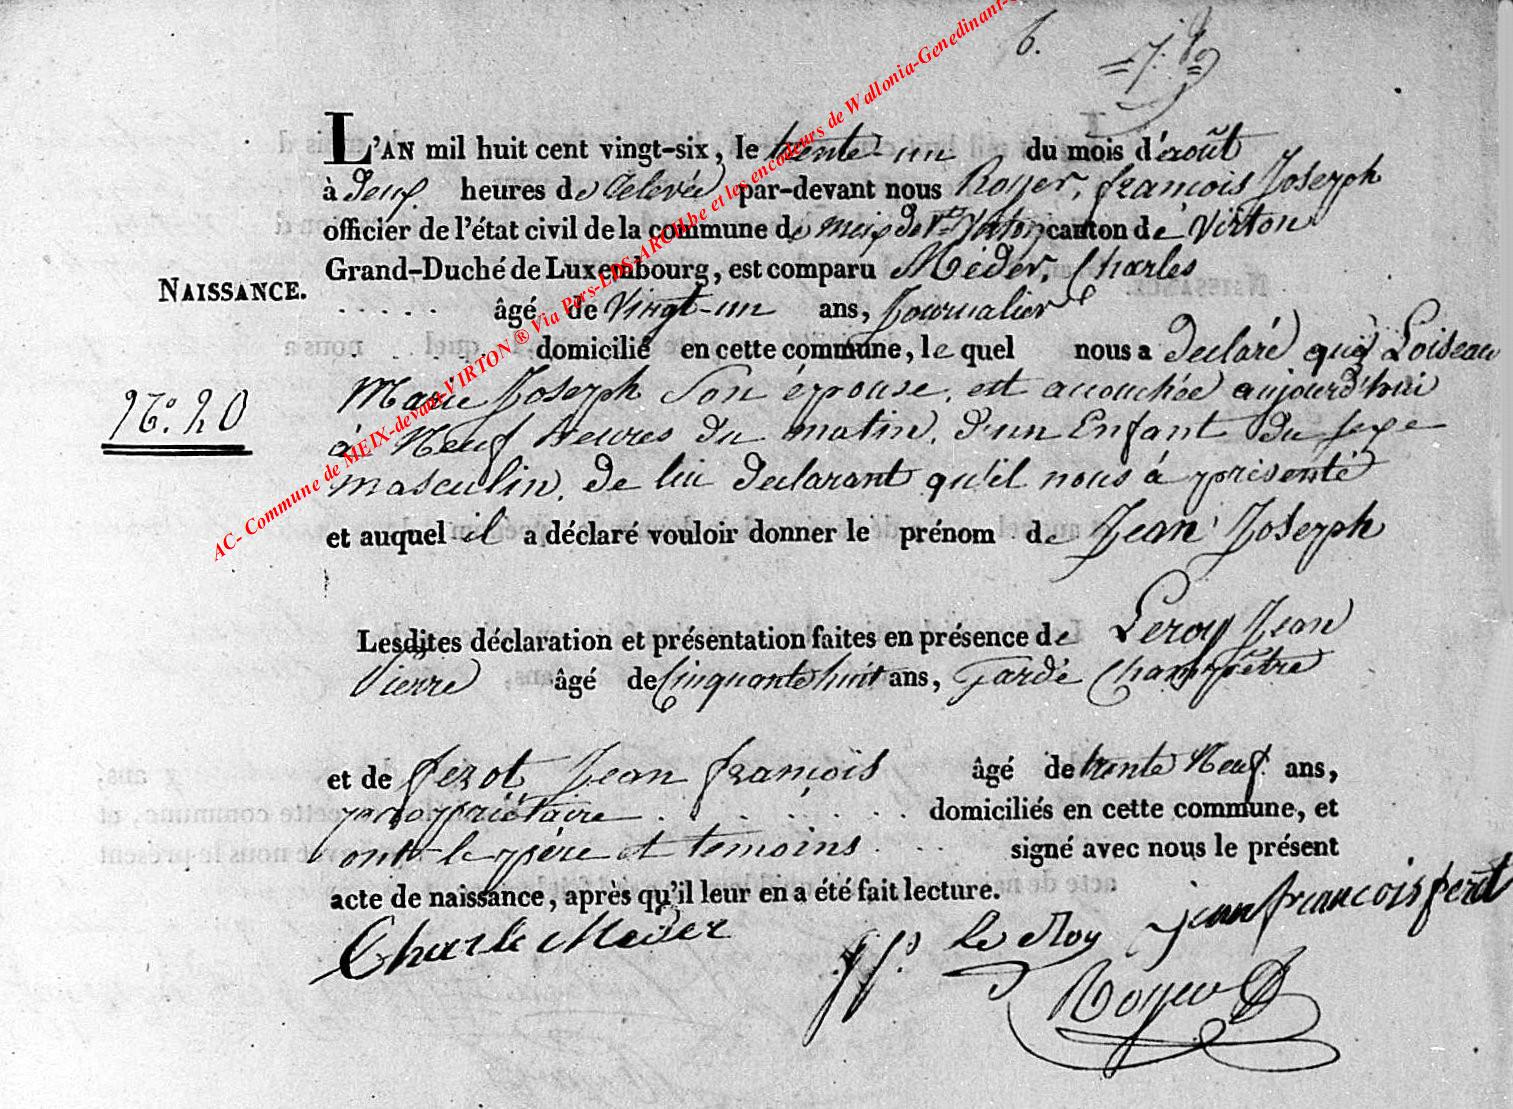 6.
AC- Commune de MEIX-devant-VIRTON ® Via Pers-LDS-ARCH.be et les encodeurs de Wallonia-Genedinant-
L'AN mil huit cent vingt-six, le trente-un du mois d'août
à Deux heures de relevée par-devant nous Royer, françois Joseph
officier de l'état civil de la commune de meix dev.t Virton canton de Virton
Grand-Duché de Luxembourg, est comparu Méder, Charles
NAISSANCE.
âgé de Vingt-un ans, Journalier
domicilié en cette commune, le quel nous a declaré que Loiseau
N.o 20
Marie Joseph Son épouse, est accouchée aujourd'hui
à Neuf heures du matin, d'un Enfant du sexe
masculin, de lui declarant qu'il nous à présenté
et auquel il a déclaré vouloir donner le prénom de Jean Joseph
Lesdites déclaration et présentation faites en présence de Leroy Jean
Pierre âgé de Cinquante huit ans, Garde Champêtre
et de ferot, Jean françois âgé de trente Neuf ans,
propriétaire domiciliés en cette commune, et
ont le père et temoins signé avec nous le présent
acte de naissance, après qu'il leur en a été fait lecture.
Charle Meder jp. Le Roy jean francois ferot
Royer